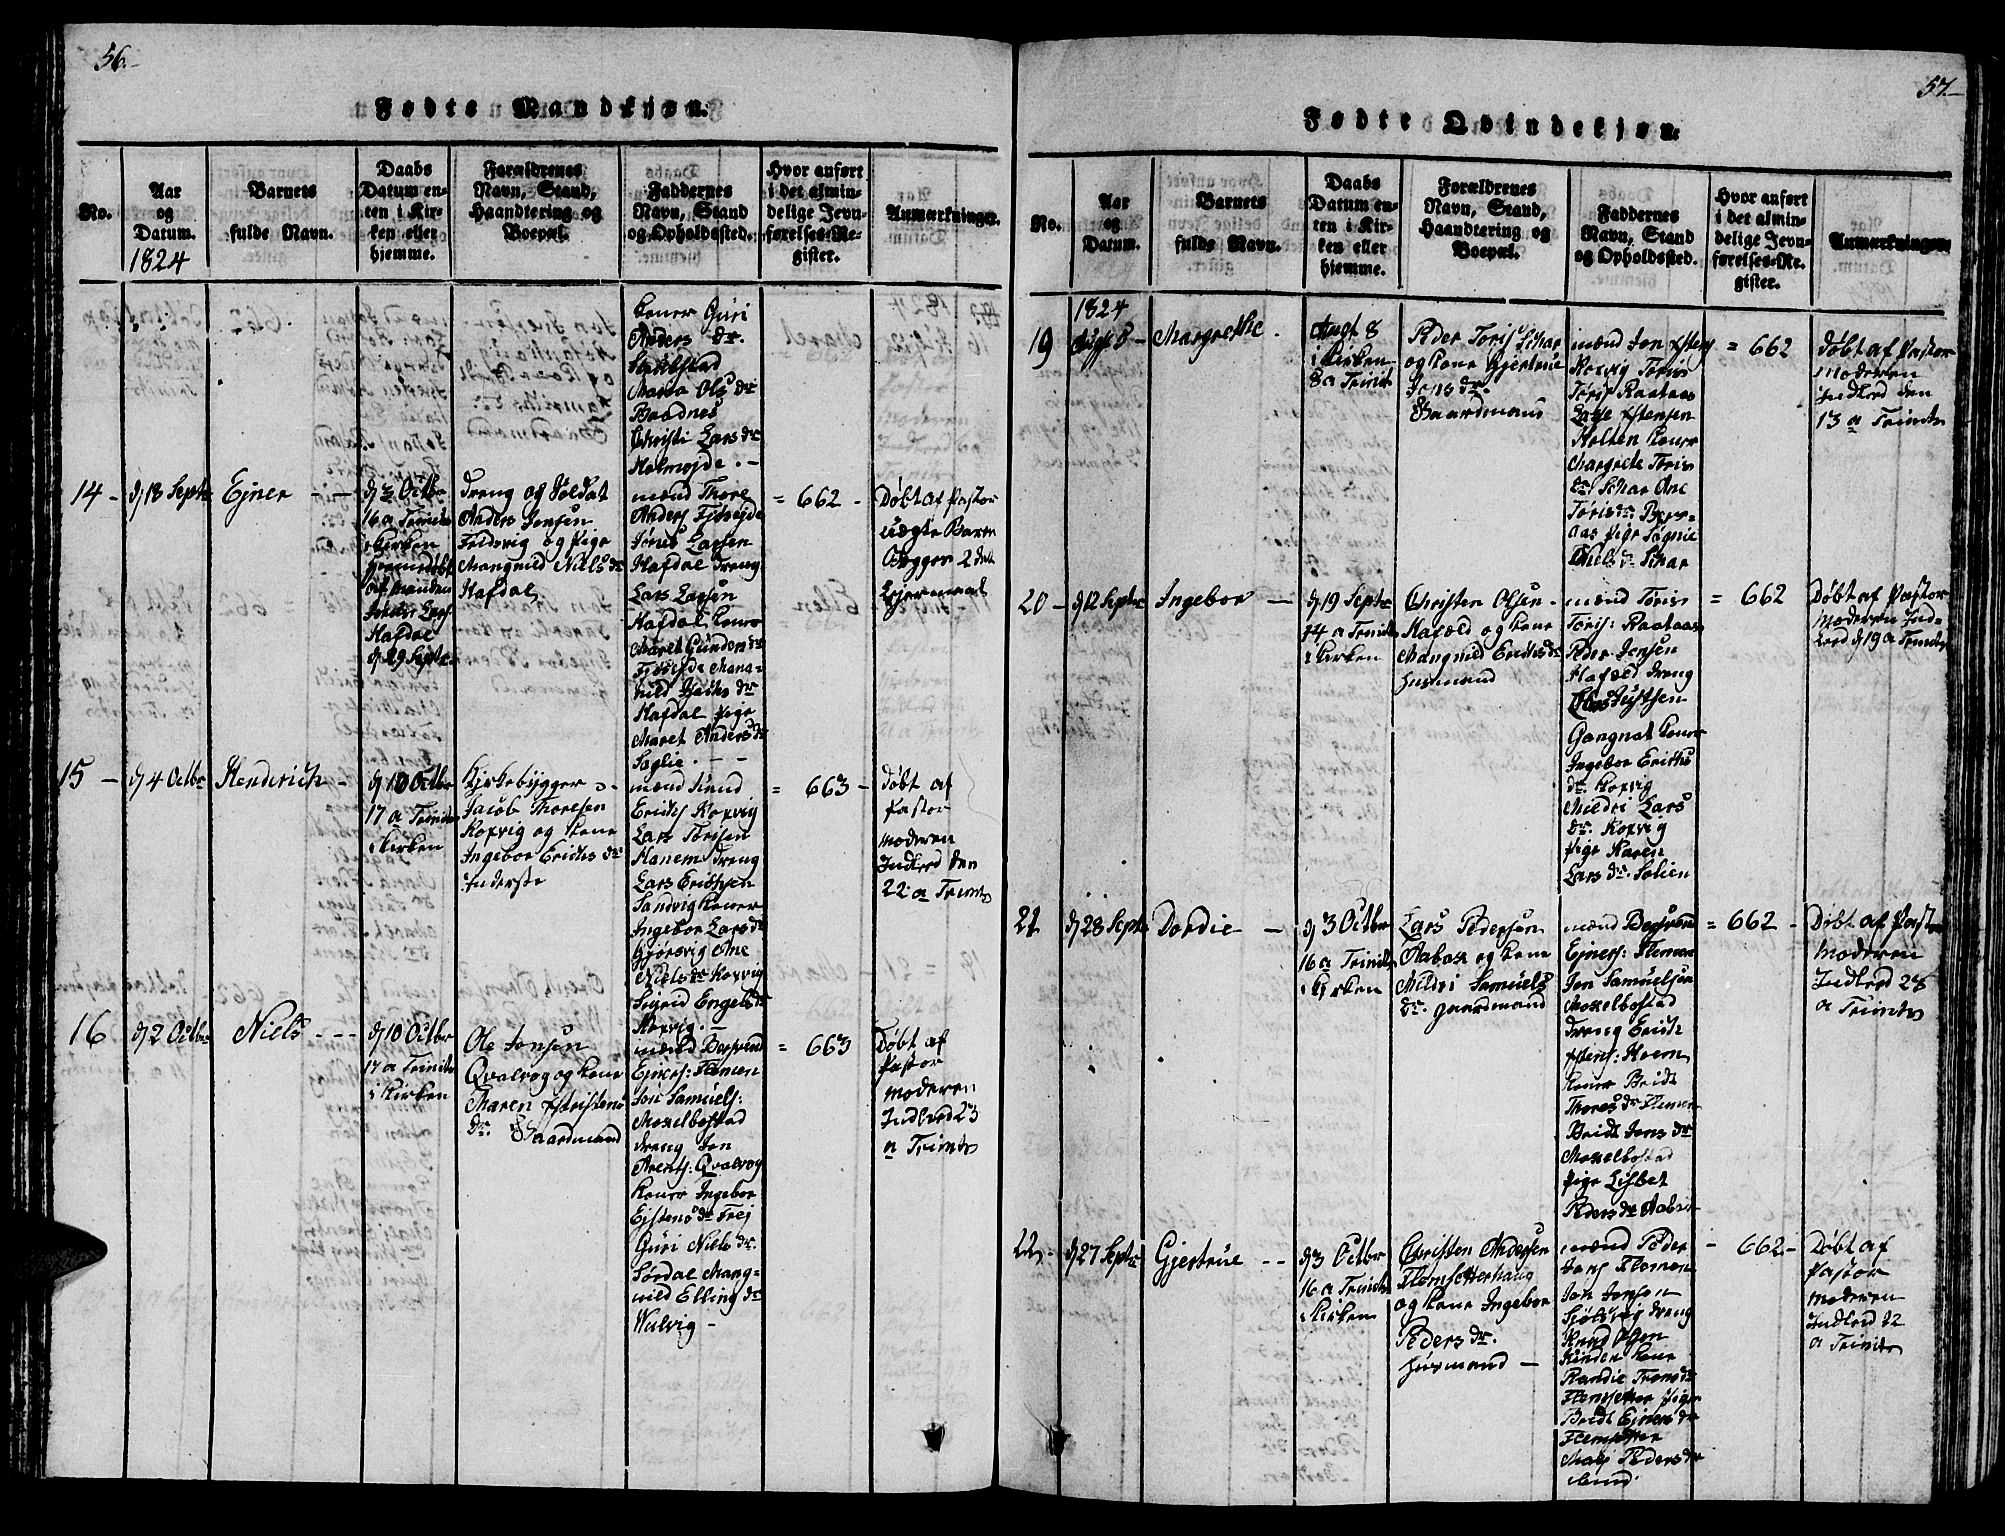 56.
Fødte Mandkjøn.
No.
Aar
og
Datum.
1824
Barnets
fulde Navn.
Daabs
Datum en-
ten i Kir-
ken eller
hjemme.
Forældrenes
Navn, Stand,
Haandtering og
Boepæl.
Faddernes
Navn, Stand
og Opholdssted.
Hvor anført
i det almin-
delige Jevn-
førelses-Re-
gister.
Anmærkninger.
koner Guri
Anders dr.
Maria Ols dr
Baadnes
Christi Lars dr
Holmøjde . -
14 - d 18 Septr
Ejner - -
d 3 Octbr
16 a Trinit
i Kirken
Hjemmedøbt
af manden
Hafdal
d 29 Septr
dreng og Soldat
Anders Jonsen
Feldsvig og Pige
Mangnild Niels dr
Hafdal
mænd Thore
Anders
Jones Larsen
Hafdal dreng
Lars Larsen
Hafdal koner
Maret Gunders dr
Mang-
nild
Hafdal pige
Maret Anders dr
Soglie . - -
= 662 -
Døbt af Pastor
uægte Barn
Begges 2det
Lejermaal
15 - d 4 Octbr
Henderich -
d 10 Octbr
17 a Trinit
i Kirken
Kirkebygger
Jacob Thoresen
Korvig og kone
Ingebor Erichs dr
Inderste
mænd Knud
Erichs Korvig
Lars Torisen
Hanem dreng
Lars Erichsen
Sandvig koner
Ingebor Lars dr
Gjørsvig Ane
Niels dr Korvig
Sigrid Engels dr
Korvig . -
= 663 -
Døbt af
Pastor
moderen
Indled den
22 a Trinits
16 d 2 Octbr
Niels - - -
d 10 Octbr
17 a Trinits
i Kirken
Ole Jonsen
Qvalvog og kone
Maren Estens
dr. Gaardmand
mænd Bersvend
Ejners: Flemen
Jon Samuels:
Moxelbostad
dreng Jon
Arents: Qvalvog
koner Ingebor
Ejstens dr Trej
Guri Niels dr.
Sørdal Mang-
nild Elling dr
Wulvig -
= 663
Døbt af
Pastor
moderen
Indled 23
a Trinits
57.
Fødte Qvindekjøn.
No.
Aar
og
Datum.
Barnets
fulde Navn.
Daabs
Datum en-
ten i Kir-
ken eller
hjemme.
Forældrenes
Navn, Stand,
Haandtering og
Boepæl.
Faddernes
Navn, Stand
og Opholdssted.
Hvor anført
i det almin-
delige Jevn-
førelses-Re-
gister.
Anmærkninger.
1824
19 Augst 8 - Margrethe .
Augst 8
i Kirken
8 a Trinit
Peder Toris Schar
og kone Gjertrue
Jens dr.
Gaardmand
mænd Jon Estens
Korvig Toris
Toris Raataas
Lasse Estensen
Holten koner
Margrete Toris
dr Schar Ane
Toris dr.
Pige Søgnie
Niels dr Schar
= 662
Døbt af Pastor
Moderen
Indled den
13 a Trinits
20 - d 12 Septr Ingebor -
d 19 Septr
14 a Trinits
i Kirken
Christen Olsen -
Hafæld og kone
Mangnild Erichs dr
husmand
mænd Toris
Toris: Raataas
Peder Jensen
Hafæld dreng
Gangnat koner
Ingebor Erichs
dr. Korvig
Mildri Lars
dr. Korvig
pige Karen
Lars dr. Solien
= 662
Døbt af Pastor
moderen Ind-
led d 19 a Trinits
21 d 28 Septr Dordie -
d 3 Octbr
16 a Trinits
i Kirken
Lars Pedersen
Aabak og kone
Mildri Samuels
dr. gaardmand
mænd Bersvend
Ejners: Flemen
Jon Samuelsen
Moxelbostad
dreng Erich
Estens: Hoem
koner Bridt
Thores dr Flemen
Bridt Jons dr
Moxelbostad
pige Lisbet
Peders dr Aabak
= 662 -
Døbt af Pastor
moderen
Indled 23
a Trinits
22 - d 27 Septr Gjertrue - -
d 3 Octbr
16 a Trinits
i Kirken
Christen Andersen
Flemsetterhaug
og kone Ingebor
Peders dr.
husmand -
mænd Peder
Jons Flemen
Jon Jonsen
Sjølsvig dreng
Knud Olsen
Kinden kone
Randie Trons dr
Flemsetter pige
Bridt Ejners dr
Flemsetter
Mali Peders dr
- 662 -
Døbt af
Pastor
moderen
Indled 22
a Trinits